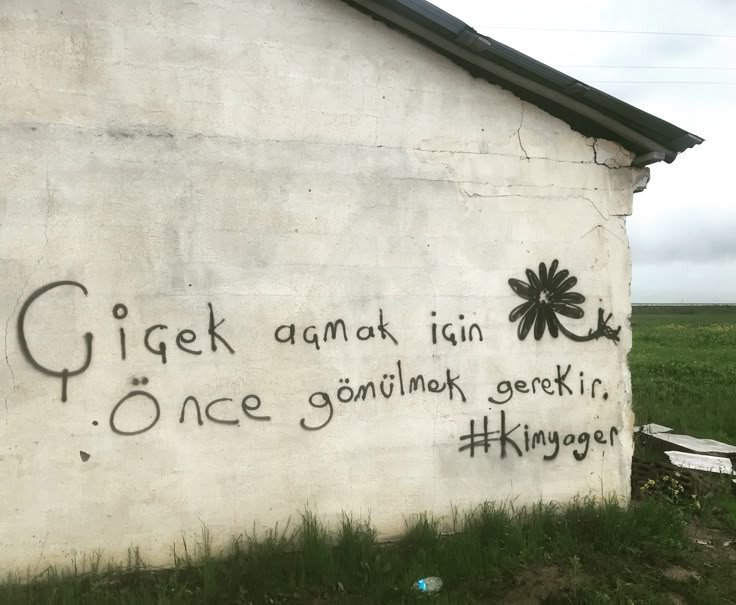 Çiçek açmak için
Önce gömülmek gerekir.
#Kimyager